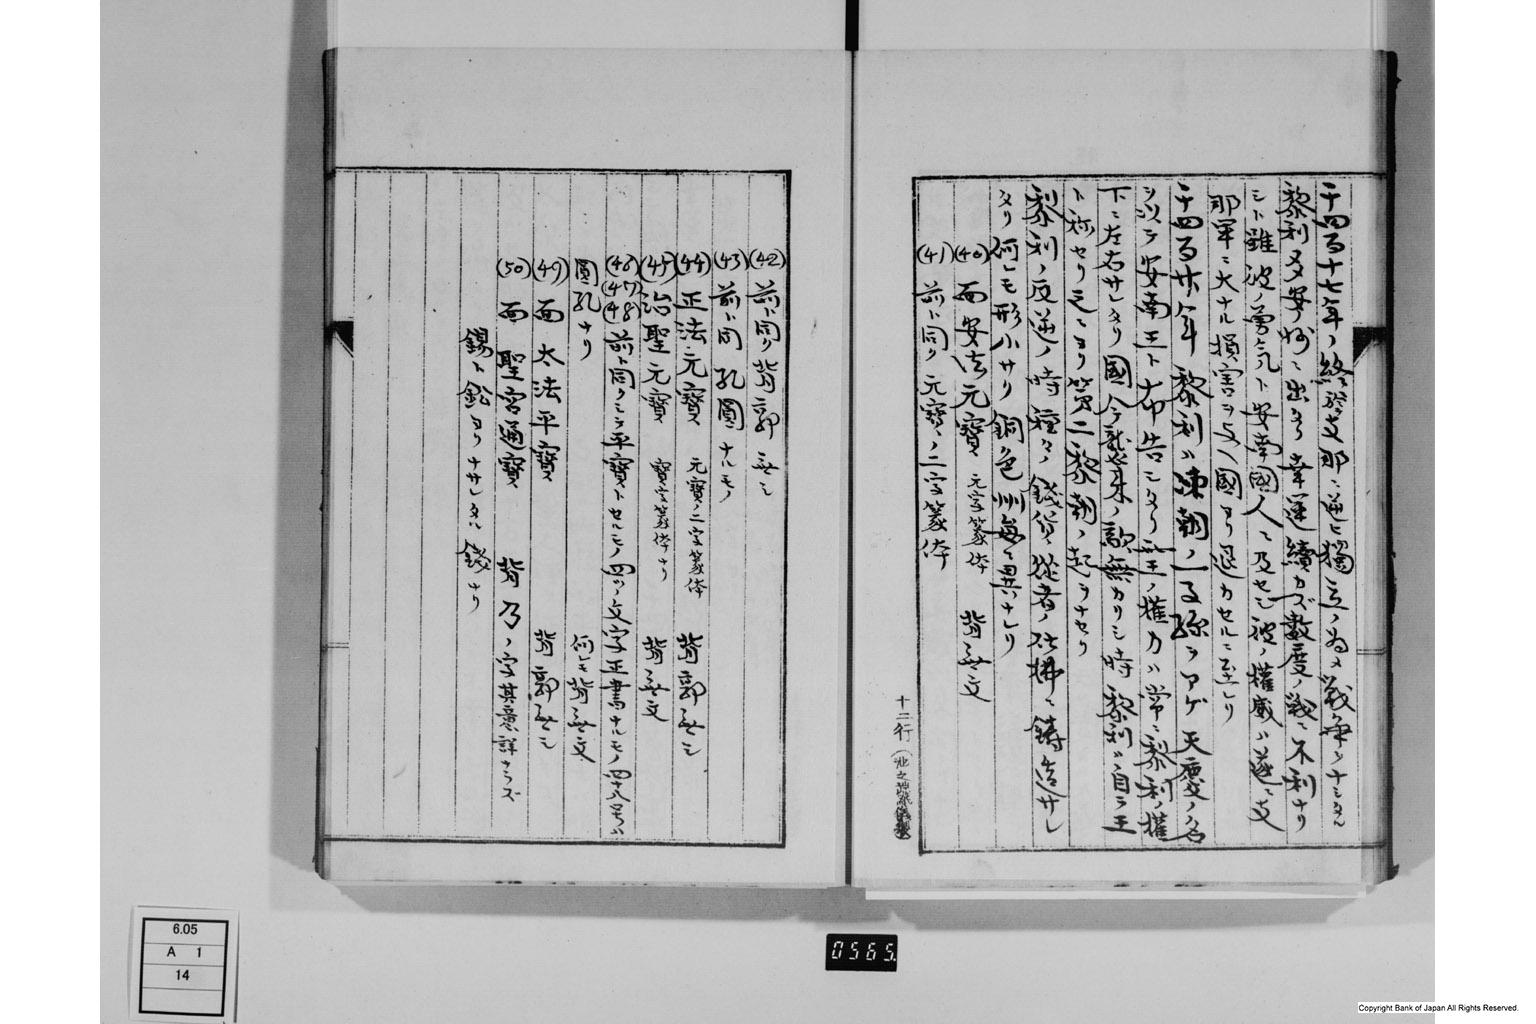 千四百十七年ノ終發支那ニ逆ヒ獨立ノ為メ戰爭ヲナシタル
黎利乃安ノ州ニ出タリ幸運續カズ數度ノ戰ニ不利ナリ
シト雖彼ノ勇氣ト安南國人ニ及セシ彼ノ權威ハ遂ニ支
那軍ニ大ナル損害ヲ與ヘ國ヨリ退カセルニ至レリ
千四百廿年黎利ハ陳朝ノ一子孫ヲアゲ天慶ノ名
ヲ以ラ安南王ト布告シタリ此王ノ權力ハ常ニ黎利ノ權
下ニ左右サレタリ國人今襲來ノ敵無カリシ時黎利ハ自ラ王
ト称セリ之ニヨリ第二黎朝ノ起ヲナセリ
黎利ノ反逆ノ時種々ノ錢貨従者ノ仕拂ニ鋳造サレ
タリ何レモ形小サリ銅色州毎ニ異ナレリ
(40) 面安法元寶 元字篆体 背無文
(41) 前ト同ク元寶ノ二字篆体
十二行
(42) 前ト同ク背郭無シ
(43) 前ト同孔圓ナルモノ
(44) 正法元寶 元寶ノ二字篆体 背郭無シ
(45) 治聖元寶 寶字篆体ナリ 背無文
(46)(47)(48) 前ト同クシラ平寶トセルモノ四ツノ文字正書ナルモノ四十八号ハ
圓孔ナリ 何レモ背無文
(49) 面太法平寶 背郭無シ
(50) 面聖宮通寶 背乃ノ字其意詳ナラズ
錫ト鉛ヨリナサレタル錢ナリ
6.05
A 1
14
0565.
Copyright Bank of Japan All Rights Reserved.